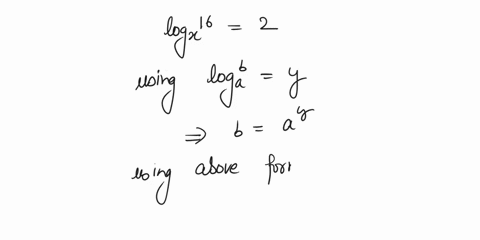 log_x 16 = 2
using log_a b = y
⇒ b = a^y
using above for